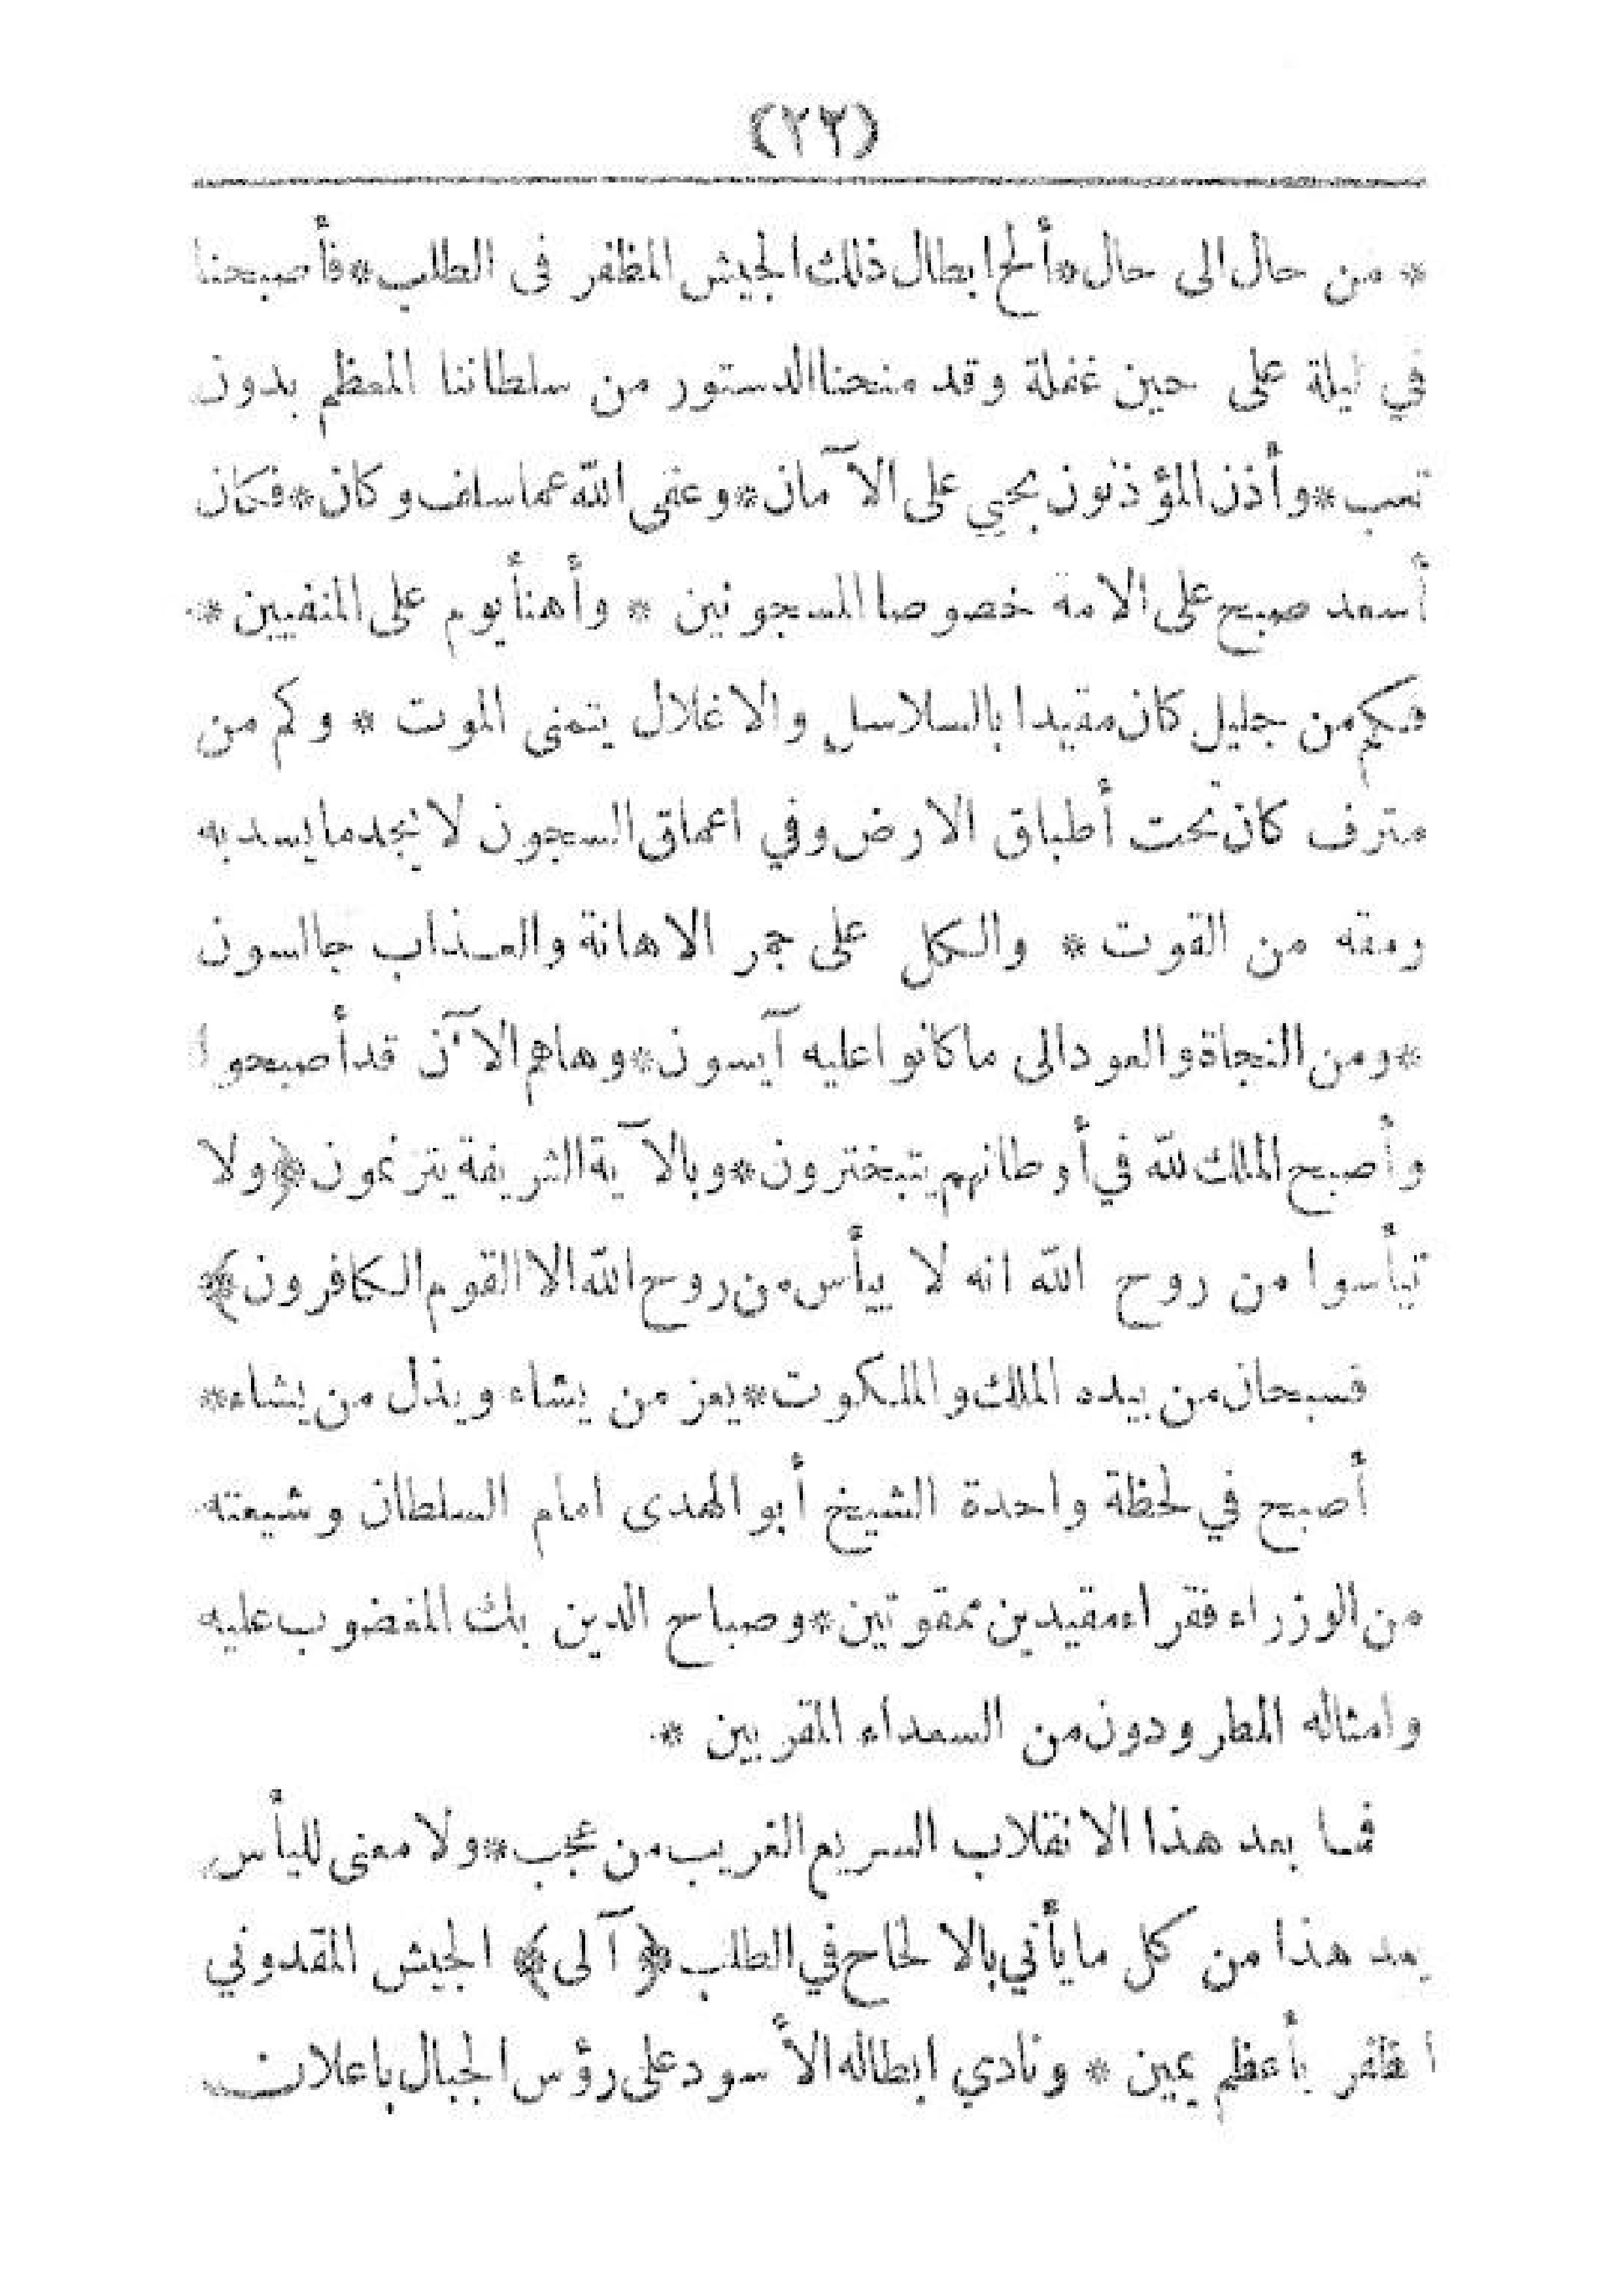 (٢٣)
* من حال الى حال * ألح ابطال ذلك الجيش المظفر فى الطلب * فأصبحنا
في ليلة على حين غفلة وقد منحنا الدستور من سلطاننا المعظم بدون
تعب * وأذن المؤذنون بحيي على الآمان * وعفى الله عما سلف وكان * فكان
أسعد صبح على الامة خصوصا المسجونين * وأهنأ يوم على المنفيين *
فكم من جليل كان مقيدا بالسلاسل والاغلال يتمنى الموت * وكم من
مترف كان تحت أطباق الارض وفي اعماق السجون لا يجد ما يسد به
رمقه من القوت * والكل على جمر الاهانة والعذاب جالسون
* ومن النجاة والعود الى ما كانوا عليه آيسون * وهاهم الآن قد أصبحوا
وأصبح الملك لله في أوطانهم يتبخترون * وبالآية الشريفة يترنمون ﴿ولا
تيأسوا من روح الله انه لا ييأس من روح الله الا القوم الكافرون﴾
فسبحان من بيده الملك والملكوت * يعز من يشاء ويذل من يشاء *
أصبح في لحظة واحدة الشيخ أبو الهدى امام السلطان وشيعته
من الوزراء فقراء مقيدين ممقوتين * وصباح الدين بك المغضوب عليه
وامثاله المطرودون من السعداء المقربين *
فما بعد هذا الانقلاب السريع الغريب من عجب * ولا معنى لليأس
بعد هذا من كل ما يأتي بالالحاح في الطلب ﴿آلى﴾ الجيش المقدوني
المظفر بأعظم يمين * ونادي ابطاله الأسود على رؤس الجبال باعلان